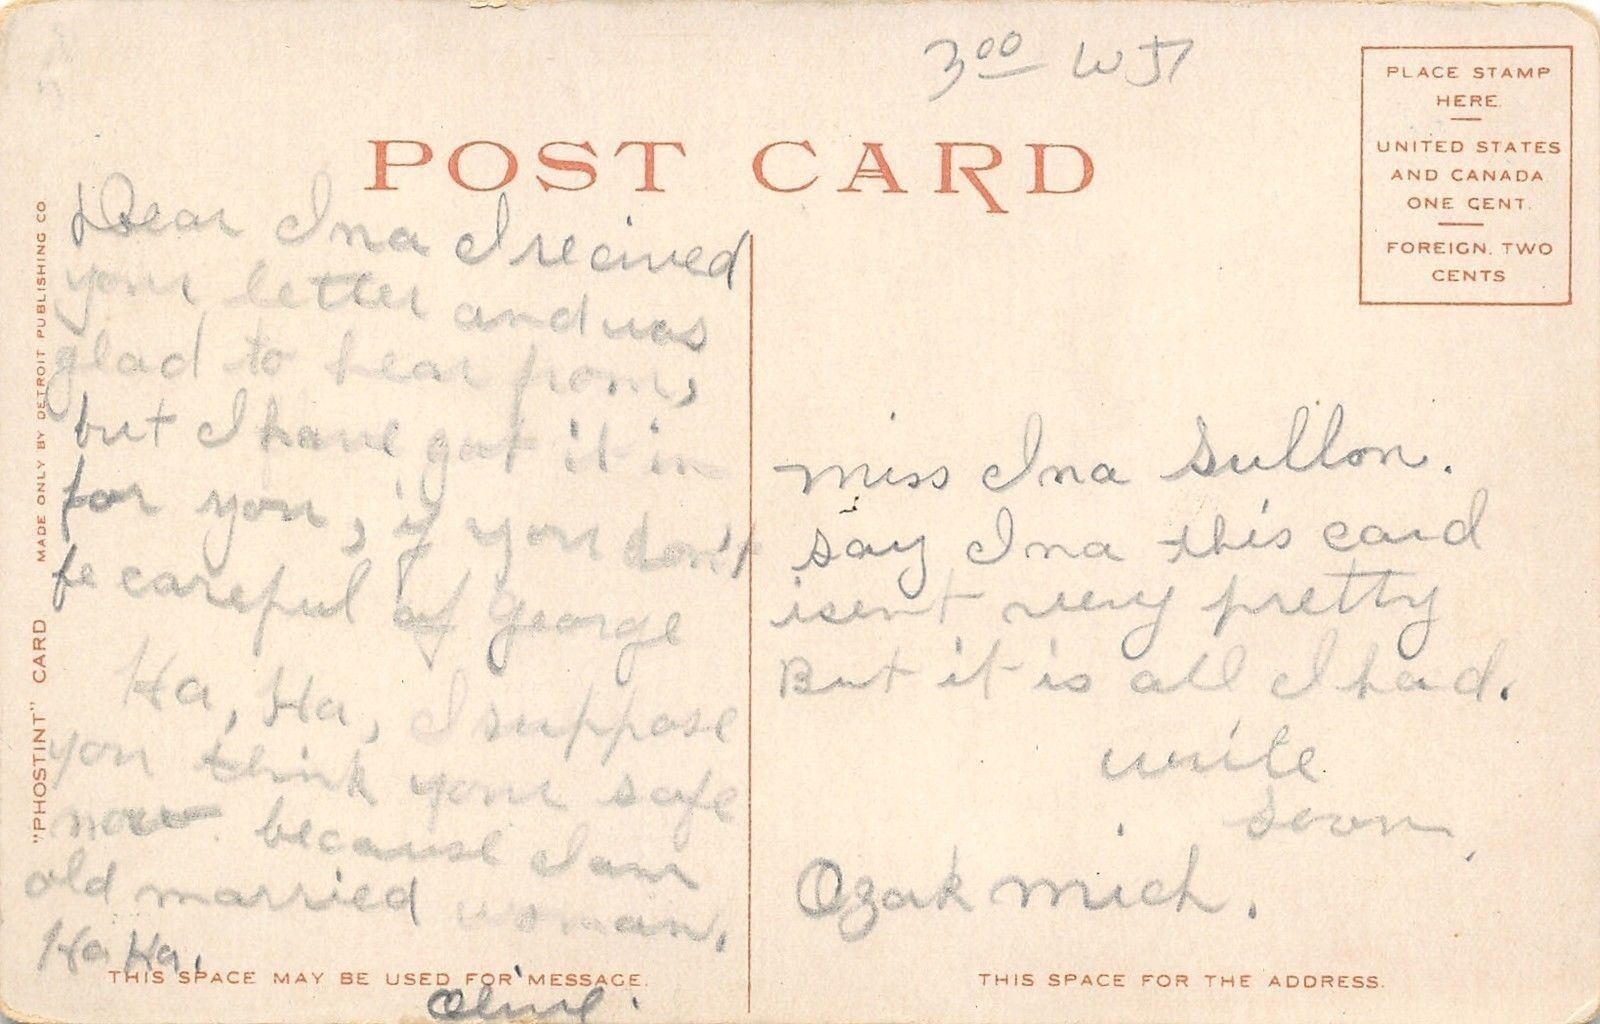 3 00 WJ
POST CARD
PLACE STAMP
HERE.
UNITED STATES
AND CANADA
ONE CENT.
FOREIGN. TWO
CENTS
"PHOSTINT" CARD MADE ONLY BY DETROIT PUBLISHING CO
Dear Ina I recived
your letter and was
glad to hear from,
but I have got it in
for you, if you don't
be careful of George
Ha, Ha, I suppose
you think your safe
now because I am
old married woman.
Ha Ha.
Olive.
THIS SPACE MAY BE USED FOR MESSAGE.
Miss Ina Sullon.
say Ina this card
isent very pretty
But it is all I had.
write
soon.
Ozark Mich.
THIS SPACE FOR THE ADDRESS.